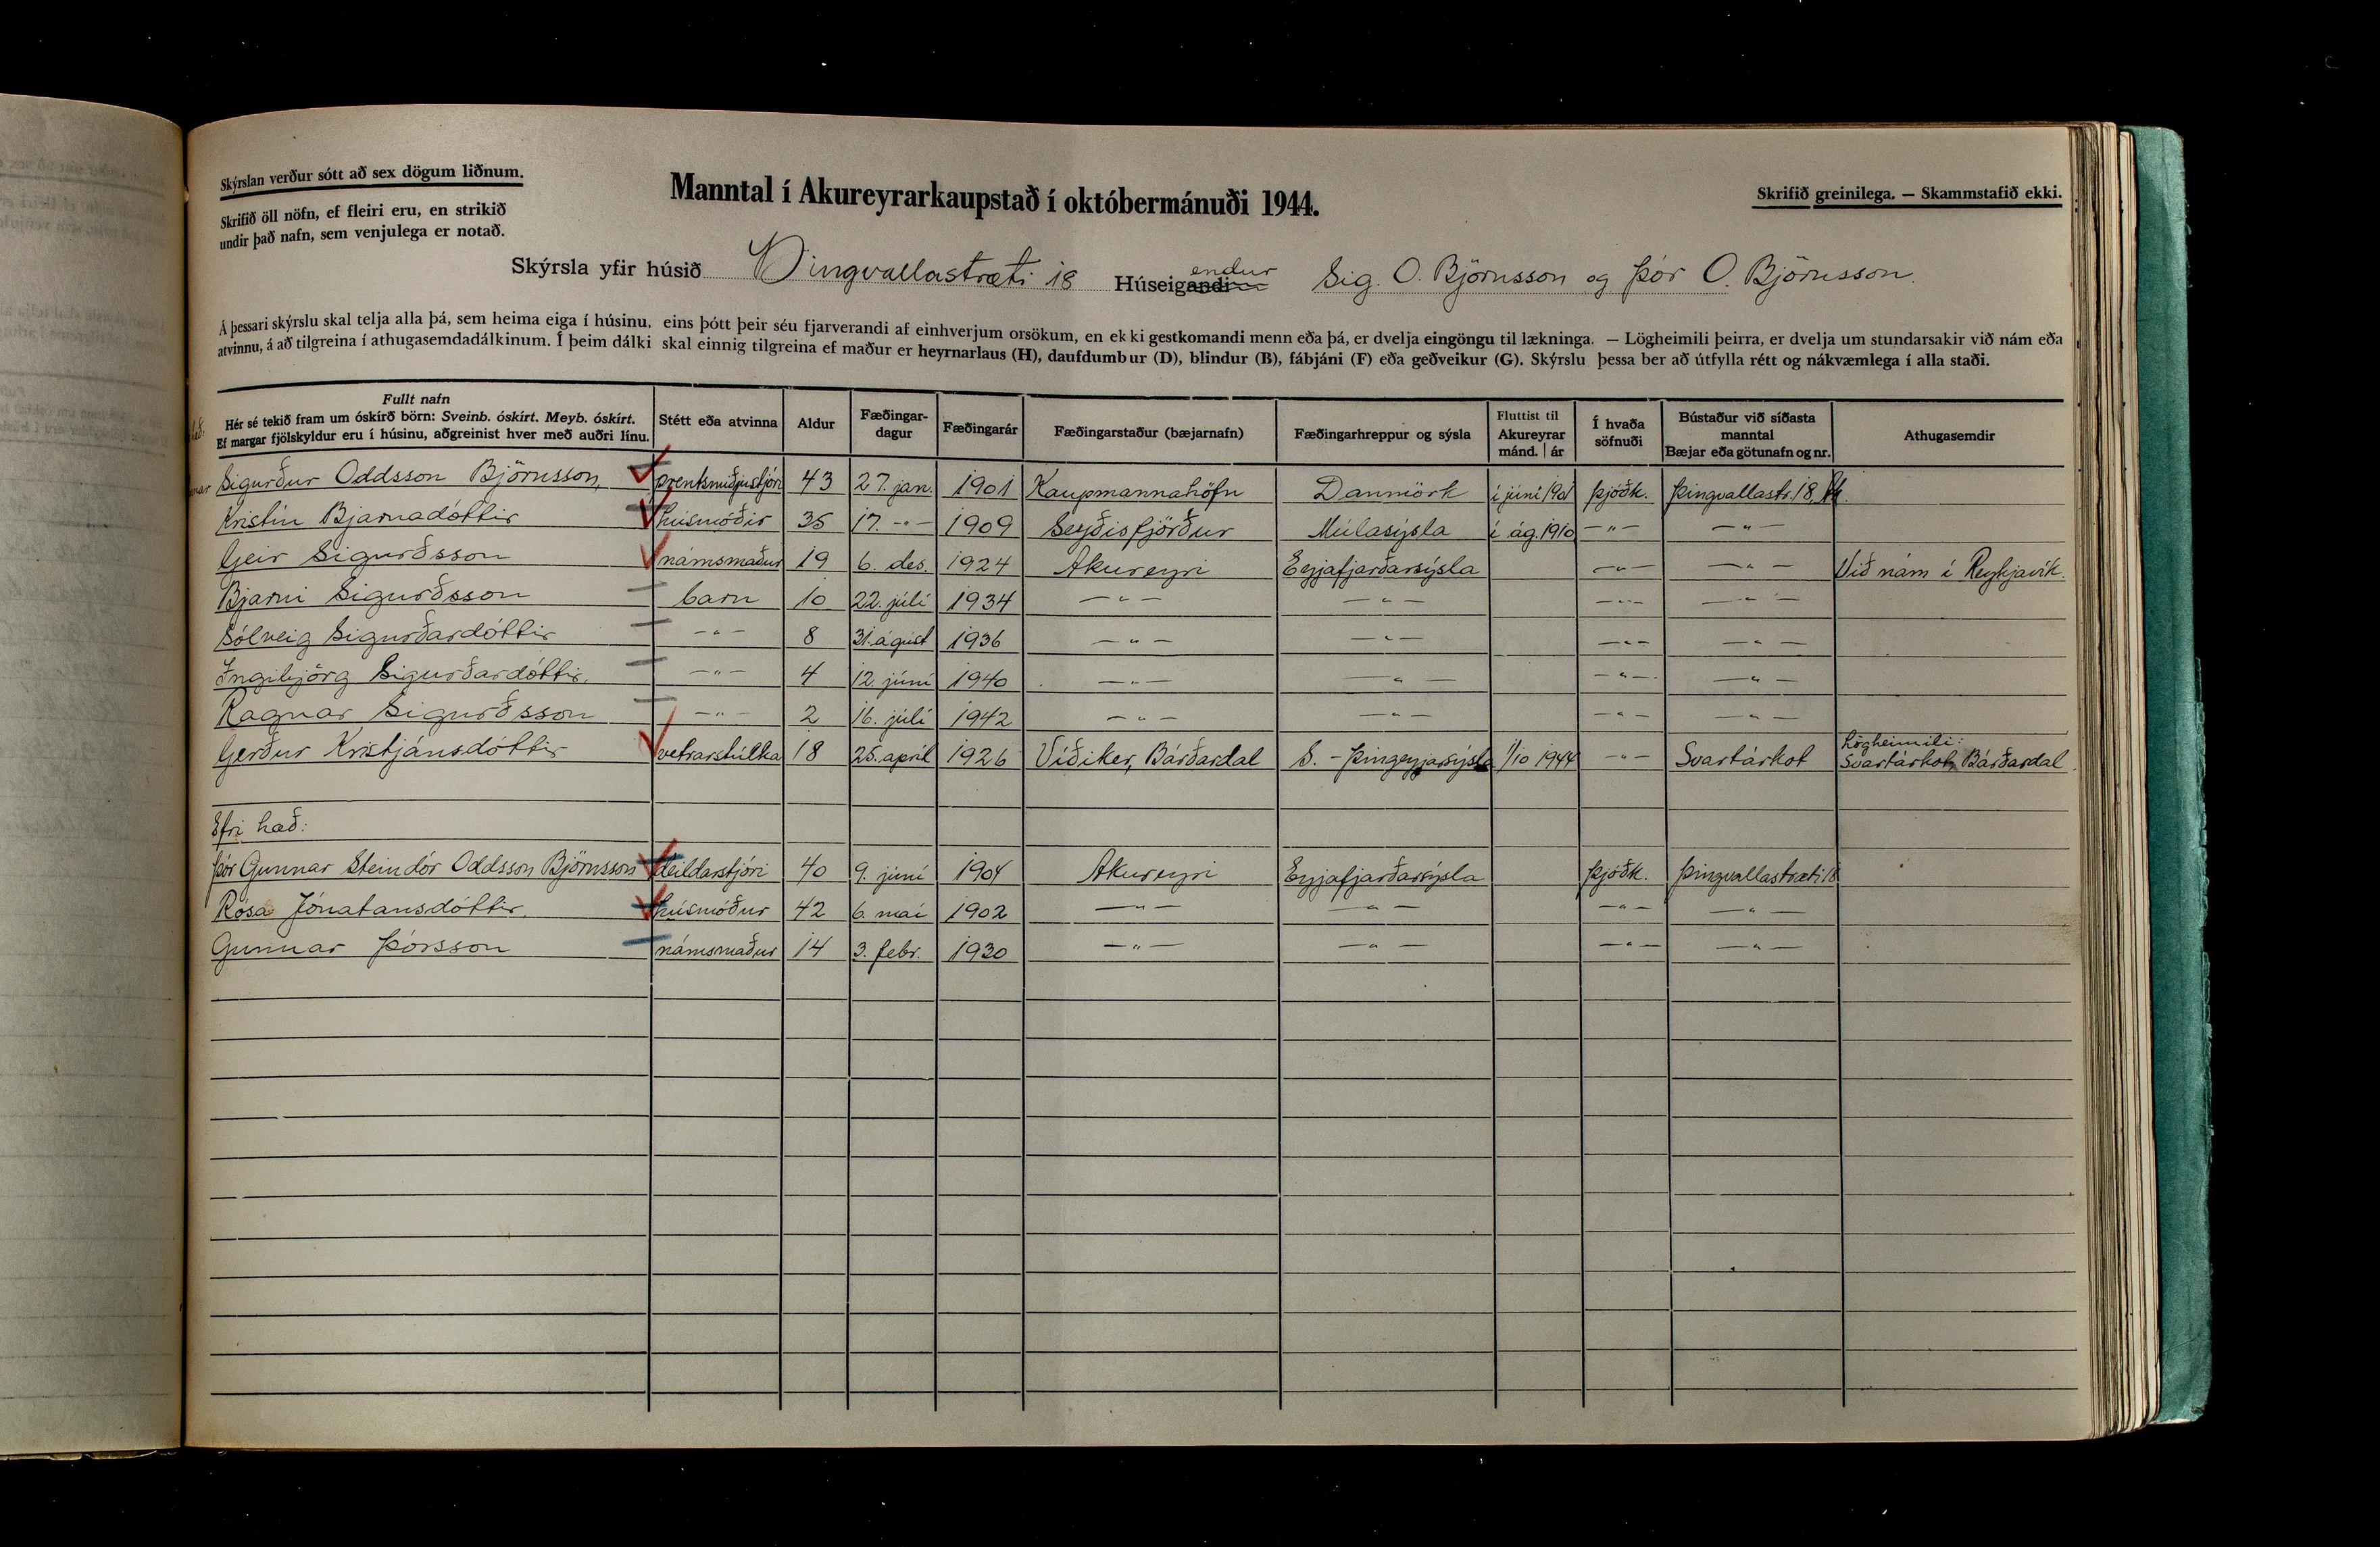 Skýrslan verður sótt að sex dögum liðnum.
Skrifið öll nöfn, ef fleiri eru, en strikið
undir það nafn, sem venjulega er notað.
Manntal í Akureyrarkaupstað í októbermánuði 1944.
Skrifið greinilega. — Skammstafið ekki.
Skýrsla yfir húsið Þingvallastræti 18 Húseigandi endur Sig. O. Björnsson og Þór O. Björnsson.
Á þessari skýrslu skal telja alla þá, sem heima eiga í húsinu, eins þótt þeir séu fjarverandi af einhverjum orsökum, en ekki gestkomandi menn eða þá, er dvelja eingöngu til lækninga. — Lögheimili þeirra, er dvelja um stundarsakir við nám eða
atvinnu, á að tilgreina í athugasemdadálkinum. Í þeim dálki skal einnig tilgreina ef maður er heyrnarlaus (H), daufdumbur (D), blindur (B), fábjáni (F) eða geðveikur (G). Skýrslu þessa ber að útfylla rétt og nákvæmlega í alla staði.
Fullt nafn Hér sé tekið fram um óskírð börn: Sveinb. óskírt. Meyb. óskírt. Ef margar fjölskyldur eru í húsinu, aðgreinist hver með auðri línu. Stétt eða atvinna Aldur Fæðingar-dagur Fæðingarár Fæðingarstaður (bæjarnafn) Fæðingarhreppur og sýsla Fluttist til Akureyrar mánd. ár Í hvaða söfnuði Bústaður við síðasta manntal Bæjar eða götunafn og nr. Athugasemdir
Sigurður Oddsson Björnsson, prentsmiðjustjóri 43 27. jan. 1901 Kaupmannahöfn Danmörk í júní 1901 Þjóðk. Þingvallastr. 18,
Kristín Bjarnadóttir húsmóðir 35 17. -"- 1909 Seyðisfjörður Múlasýsla í ág. 1910 -"- -"-
Geir Sigurðsson námsmaður 19 6. des. 1924 Akureyri Eyjafjarðarsýsla -"- -"- Við nám í Reykjavík.
Bjarni Sigurðsson barn 10 22. júlí 1934 -"- -"- -"- -"-
Sólveig Sigurðardóttir -"- 8 31. ágúst 1936 -"- -"- -"- -"-
Ingibjörg Sigurðardóttir. -"- 4 12. júní 1940 -"- -"- -"- -"-
Ragnar Sigurðsson -"- 2 16. júlí 1942 -"- -"- -"- -"-
Gerður Kristjánsdóttir vetrarstúlka 18 25. apríl 1926 Víðiker, Bárðardal S.-Þingeyjarsýsla 1/10 1944 -"- Svartárkot Lögheimili: Svartárkot, Bárðardal
Efri hæð:
Þór Gunnar Steindór Oddsson Björnsson deildarstjóri 40 9. júní 1904 Akureyri Eyjafjarðarsýsla Þjóðk. Þingvallastræti 18
Rósa Jónatansdóttir. húsmóður 42 6. maí 1902 -"- -"- -"- -"-
Gunnar Þórsson námsmaður 14 3. febr. 1930 -"- -"- -"- -"-